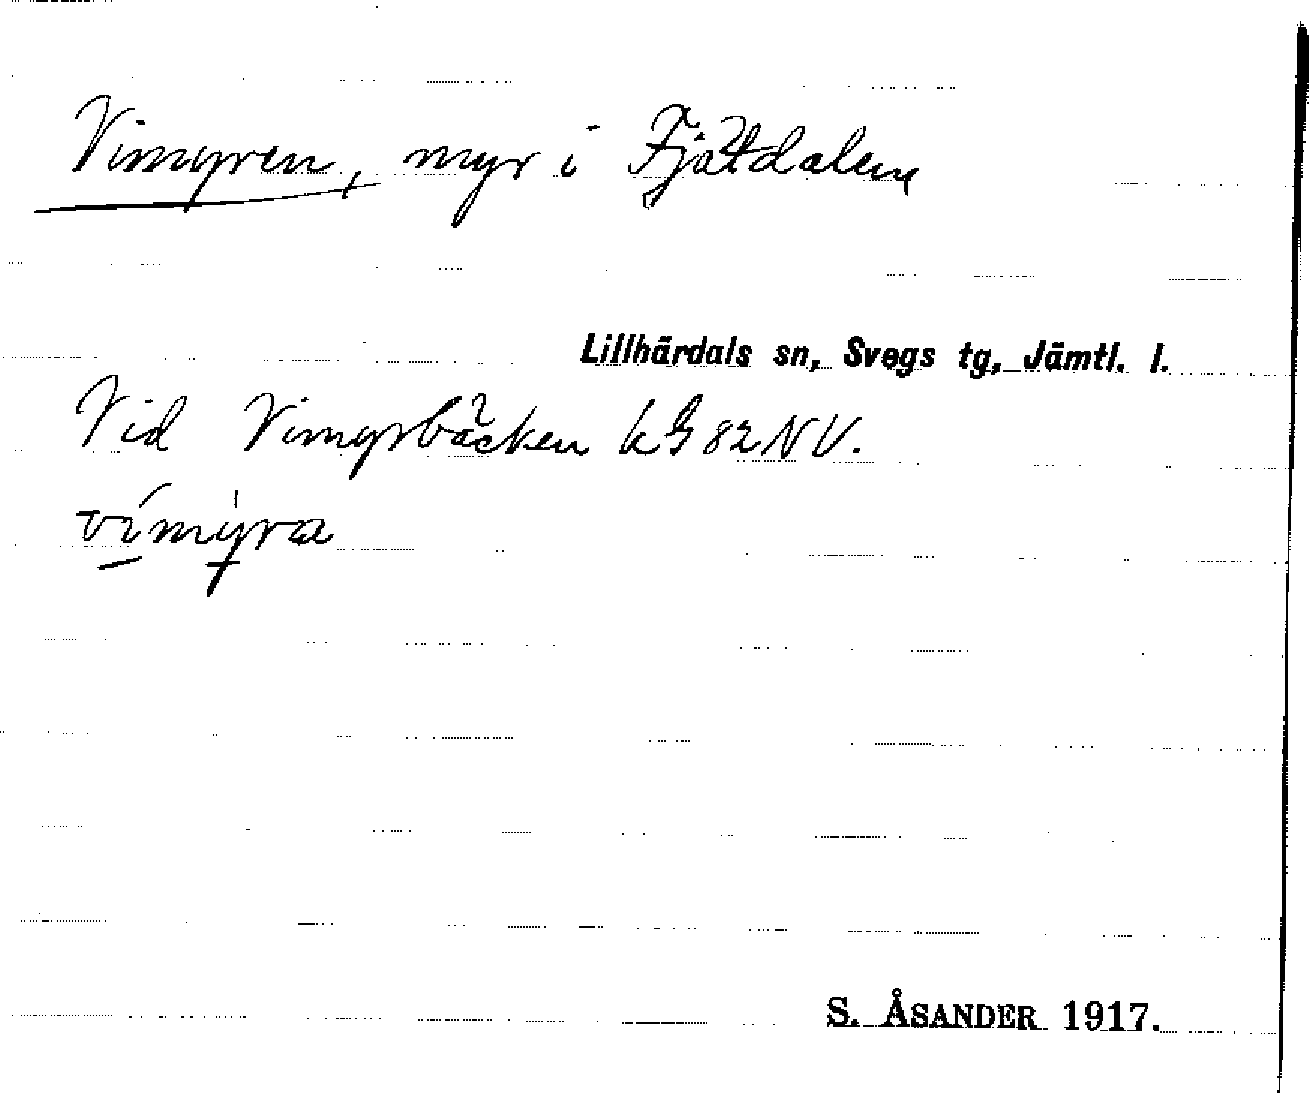 Vimyren, myr i Fjätdalen
Lillhärdals sn, Svegs tg, Jämtl. l.
Vid Vimyrbäcken kG 82 NV.
vímy̍ra
S. ÅSANDER 1917.